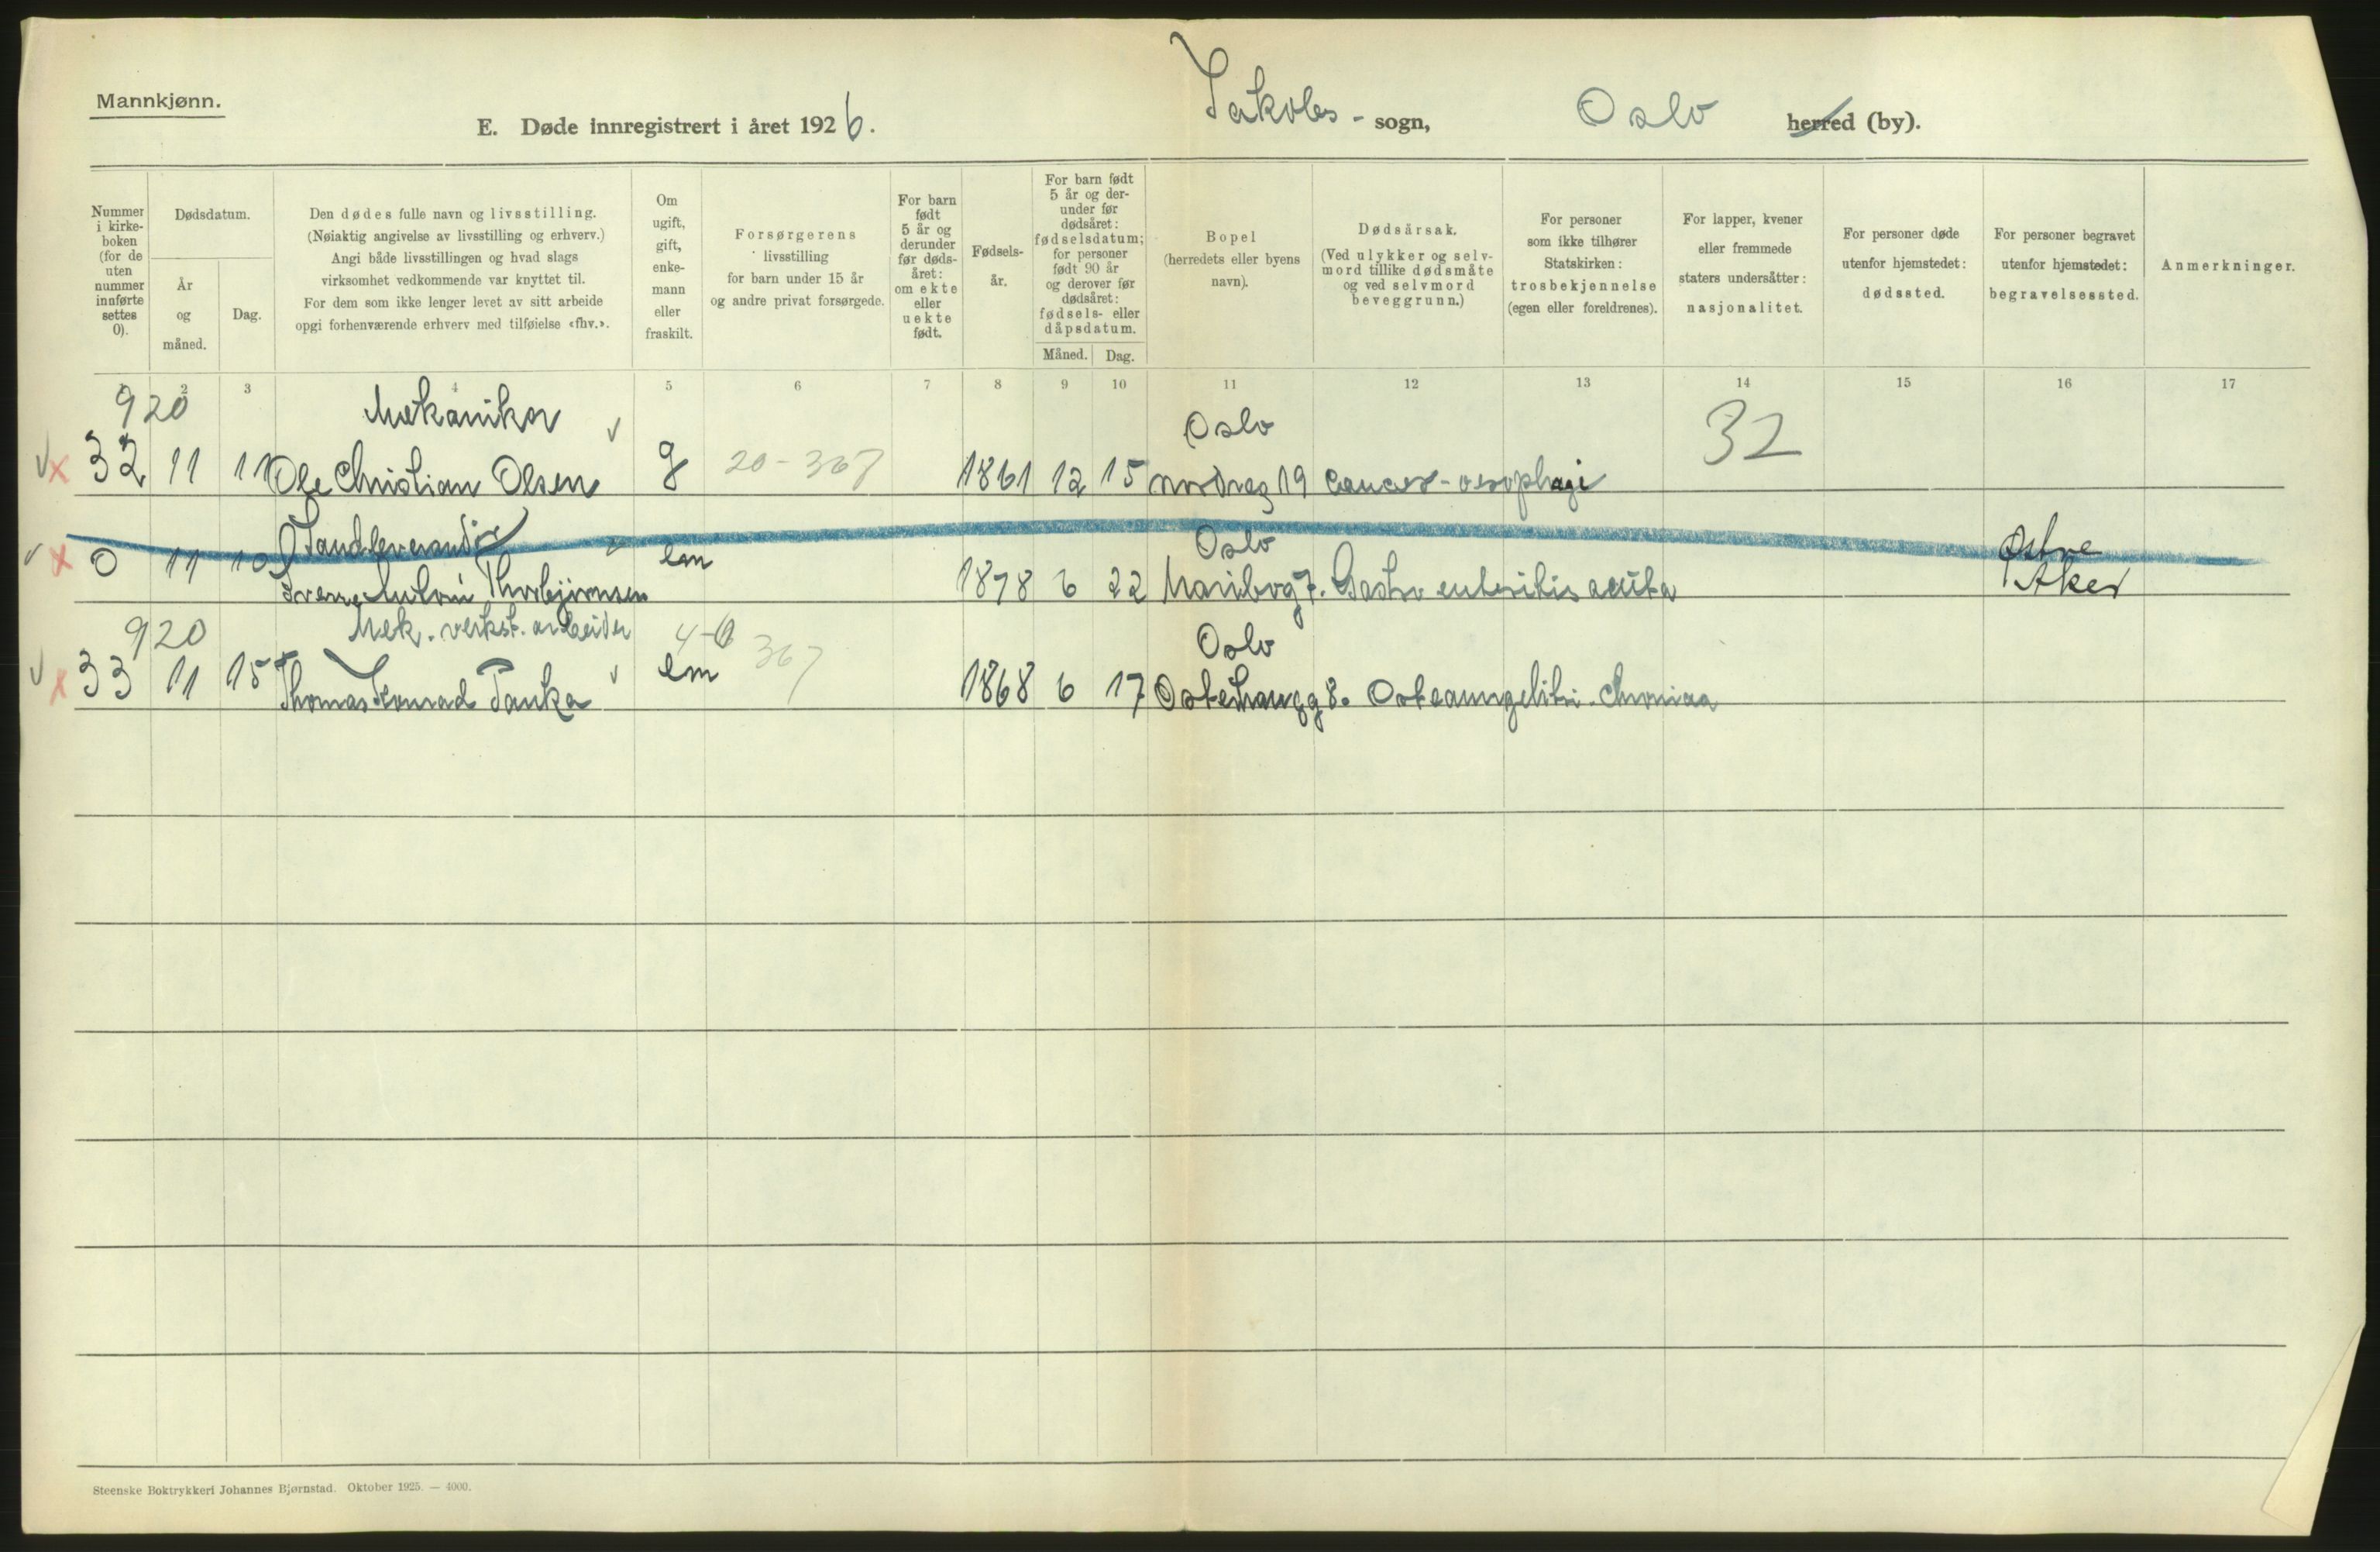 Mannkjønn.
E. Døde innregistrert i året 1926. Jakobs - sogn, Oslo herred (by).
Nummer i kirke-boken (for de uten nummer innførte settes 0).
Dødsdatum.
År og måned.
Dag.
Den dødes fulle navn og livsstilling.
(Nøiaktig angivelse av livsstilling og erhverv.)
Angi både livsstillingen og hvad slags
virksomhet vedkommende var knyttet til.
For dem som ikke lenger levet av sitt arbeide
opgi forhenværende erhverv med tilføielse «fhv.».
Om ugift, gift, enke-mann eller fraskilt.
Forsørgerens
livsstilling
for barn under 15 år
og andre privat forsørgede.
For barn født 5 år og derunder før døds-året: om ekte eller uekte født.
Fødsels-år.
For barn født 5 år og der-under før dødsåret: fødselsdatum; for personer født 90 år og derover før dødsåret: fødsels- eller dåpsdatum.
Måned. Dag.
Bopel
(herredets eller byens navn).
Dødsårsak.
(Ved ulykker og selv-mord tillike dødsmåte og ved selvmord beveggrunn.)
For personer som ikke tilhører Statskirken: trosbekjennelse (egen eller foreldrenes).
For lapper, kvener eller fremmede staters undersåtter: nasjonalitet.
For personer døde utenfor hjemstedet: dødssted.
For personer begravet utenfor hjemstedet: begravelsessted.
Anmerkninger.
1 2 3 4 5 6 7 8 9 10 11 12 13 14 15 16 17
920 Mekaniker Oslo 32
32 11 11 Ole Christian Olsen g 20-367 1861 12 15 Nordreg 19 Cancer-oesophagi
Oslo Østre
0 11 10 Thorbjørnsen em 1878 6 22 Maribog 7. Gastro enteritis acuta Aker
920 Mek. verkst. arbeider 4-0 367 Oslo
33 11 15 Thomas Konrad Panka em 1868 6 17 8.
Steenske Boktrykkeri Johannes Bjørnstad. Oktober 1925. — 4000.